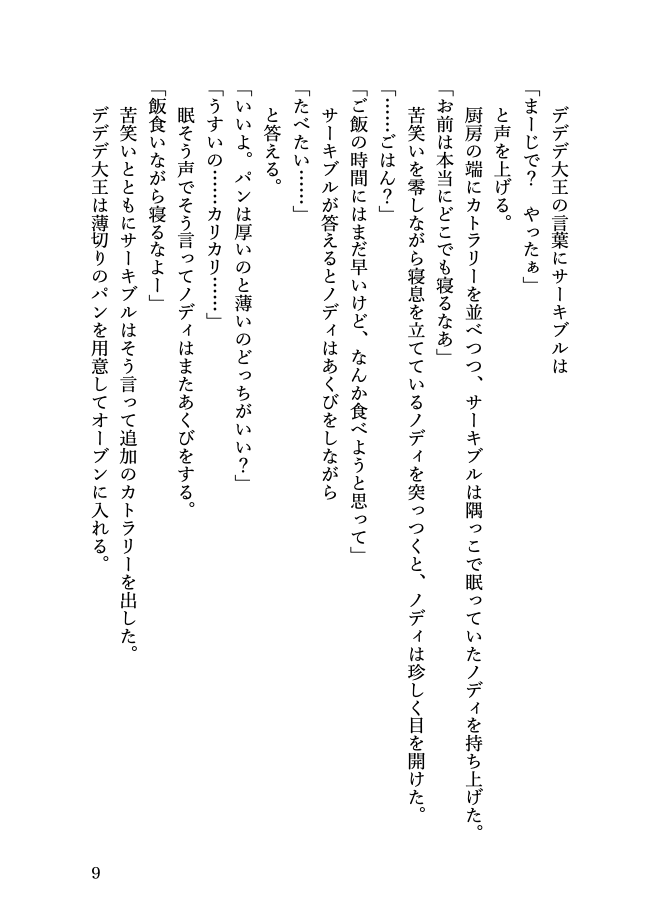 デデデ大王の言葉にサーキブルは
「まーじで？　やったぁ」
と声を上げる。
厨房の端にカトラリーを並べつつ、サーキブルは隅っこで眠っていたノディを持ち上げた。
「お前は本当にどこでも寝るなあ」
苦笑いを零しながら寝息を立てているノディを突っつくと、ノディは珍しく目を開けた。
「……ごはん？」
「ご飯の時間にはまだ早いけど、なんか食べようと思って」
サーキブルが答えるとノディはあくびをしながら
「たべたい……」
と答える。
「いいよ。パンは厚いのと薄いのどっちがいい？」
「うすいの……カリカリ……」
眠そう声でそう言ってノディはまたあくびをする。
「飯食いながら寝るなよー」
苦笑いとともにサーキブルはそう言って追加のカトラリーを出した。
デデデ大王は薄切りのパンを用意してオーブンに入れる。
9